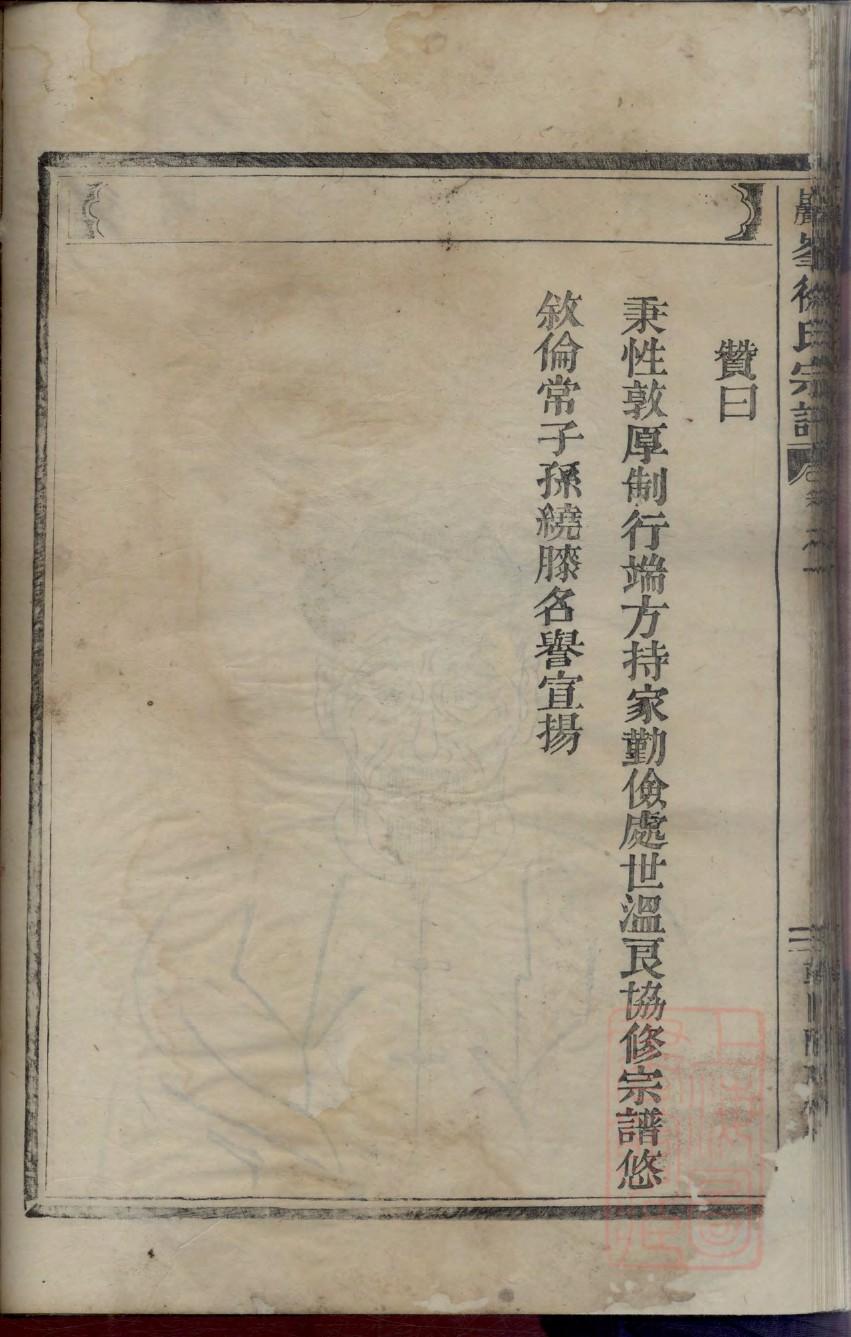 巖峯徐氏宗譜
贊曰
秉性敦厚制行端方持家勤儉處世溫良協修宗譜悠
敘倫常子孫繞膝名譽宣揚